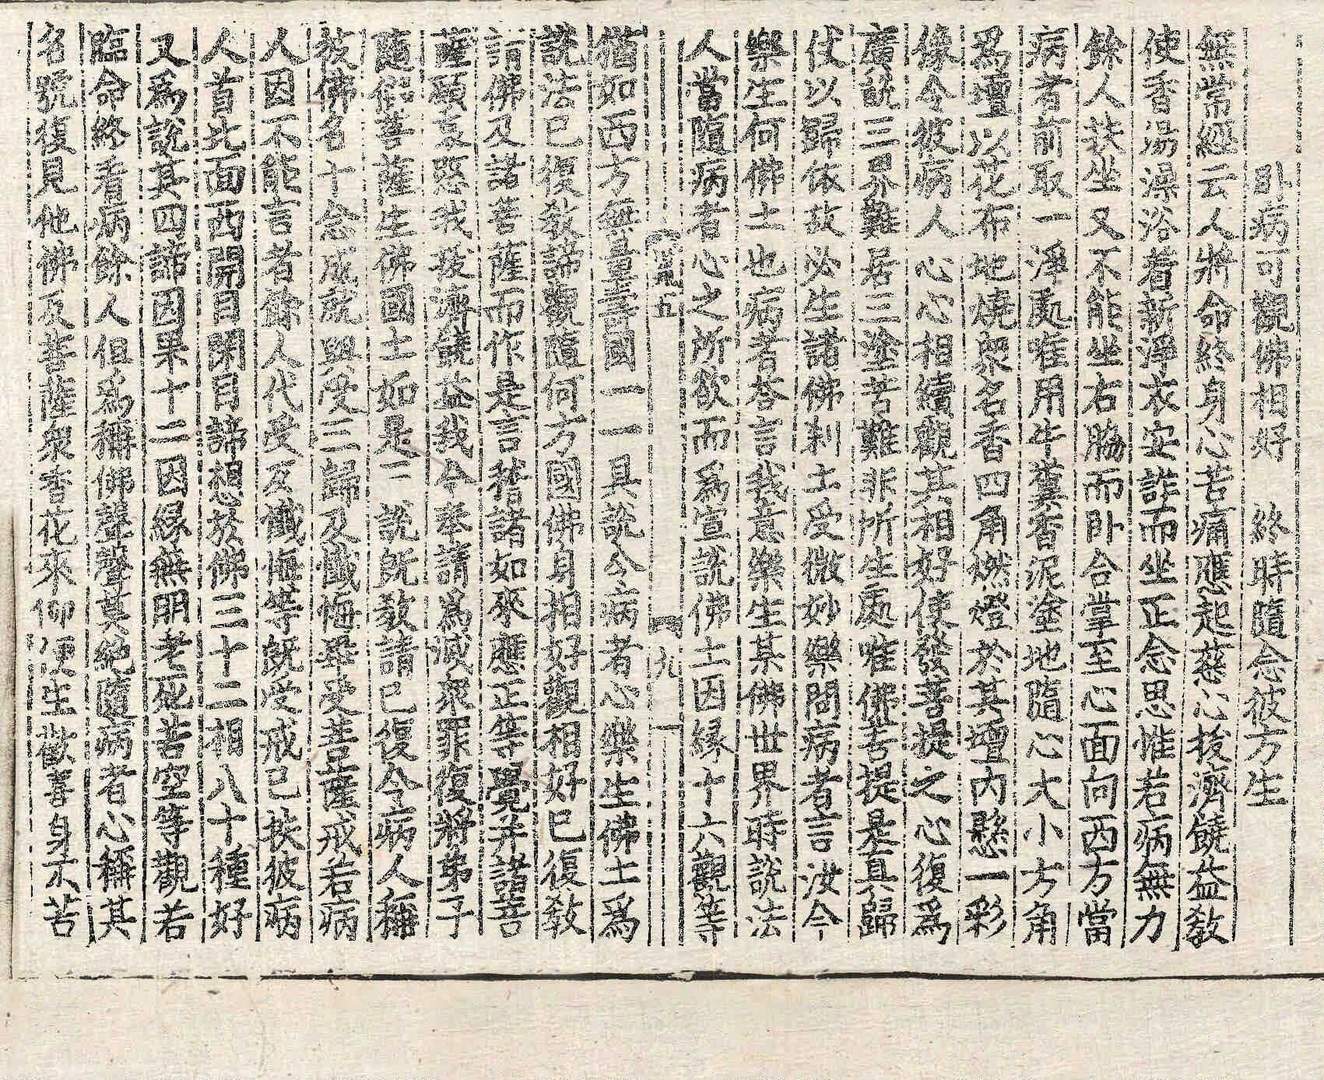 卧病可觀佛相好　終時隨念彼方生
無常經云人將命終身心苦痛應起慈心拔濟饒益敎
使香湯澡浴着新淨衣安詳而坐正念思惟若病無力
餘人扶坐又不能坐右脇而卧合掌至心面向西方當
病者前取一淨處唯用牛糞香泥塗地隨心大小方角
爲壇以花布地燒衆名香四角燃燈於其壇內懸一彩
像令彼病人心心相續觀其相好使發菩提之心復爲
廣說三界難居三塗苦難非所生處唯佛菩提是眞歸
仗以歸依故必生諸佛刹土受微妙樂問病者言汝今
樂生何佛土也病者荅言我意樂生某佛世界時說法
人當隨病者心之所欲而爲宣說佛土因緣十六觀等
五　九
猶如西方無量壽國一一具說令病者心樂生佛土爲
說法已復敎諦觀隨何方國佛身相好觀相好已復敎
請佛及諸菩薩而作是言稽諸如來應正等覺并諸菩
薩願哀愍我拔濟饒益我今奉請爲滅衆罪復將弟子
隨佛菩薩生佛國土如是二說旣敎請已復令病人稱
彼佛名十念成就與受三歸及懺悔畢受菩薩戒若病
人因不能言者餘人代受及懺悔等旣受戒已扶彼病
人首北面西開目閉目諦想於佛三十二相八十種好
又爲說其四諦因果十二因緣無明老死苦空等觀若
臨命終看病餘人但爲稱佛聲聲莫絶隨病者心稱其
名號復見他佛及菩薩衆香花來仰便生歡喜身不苦